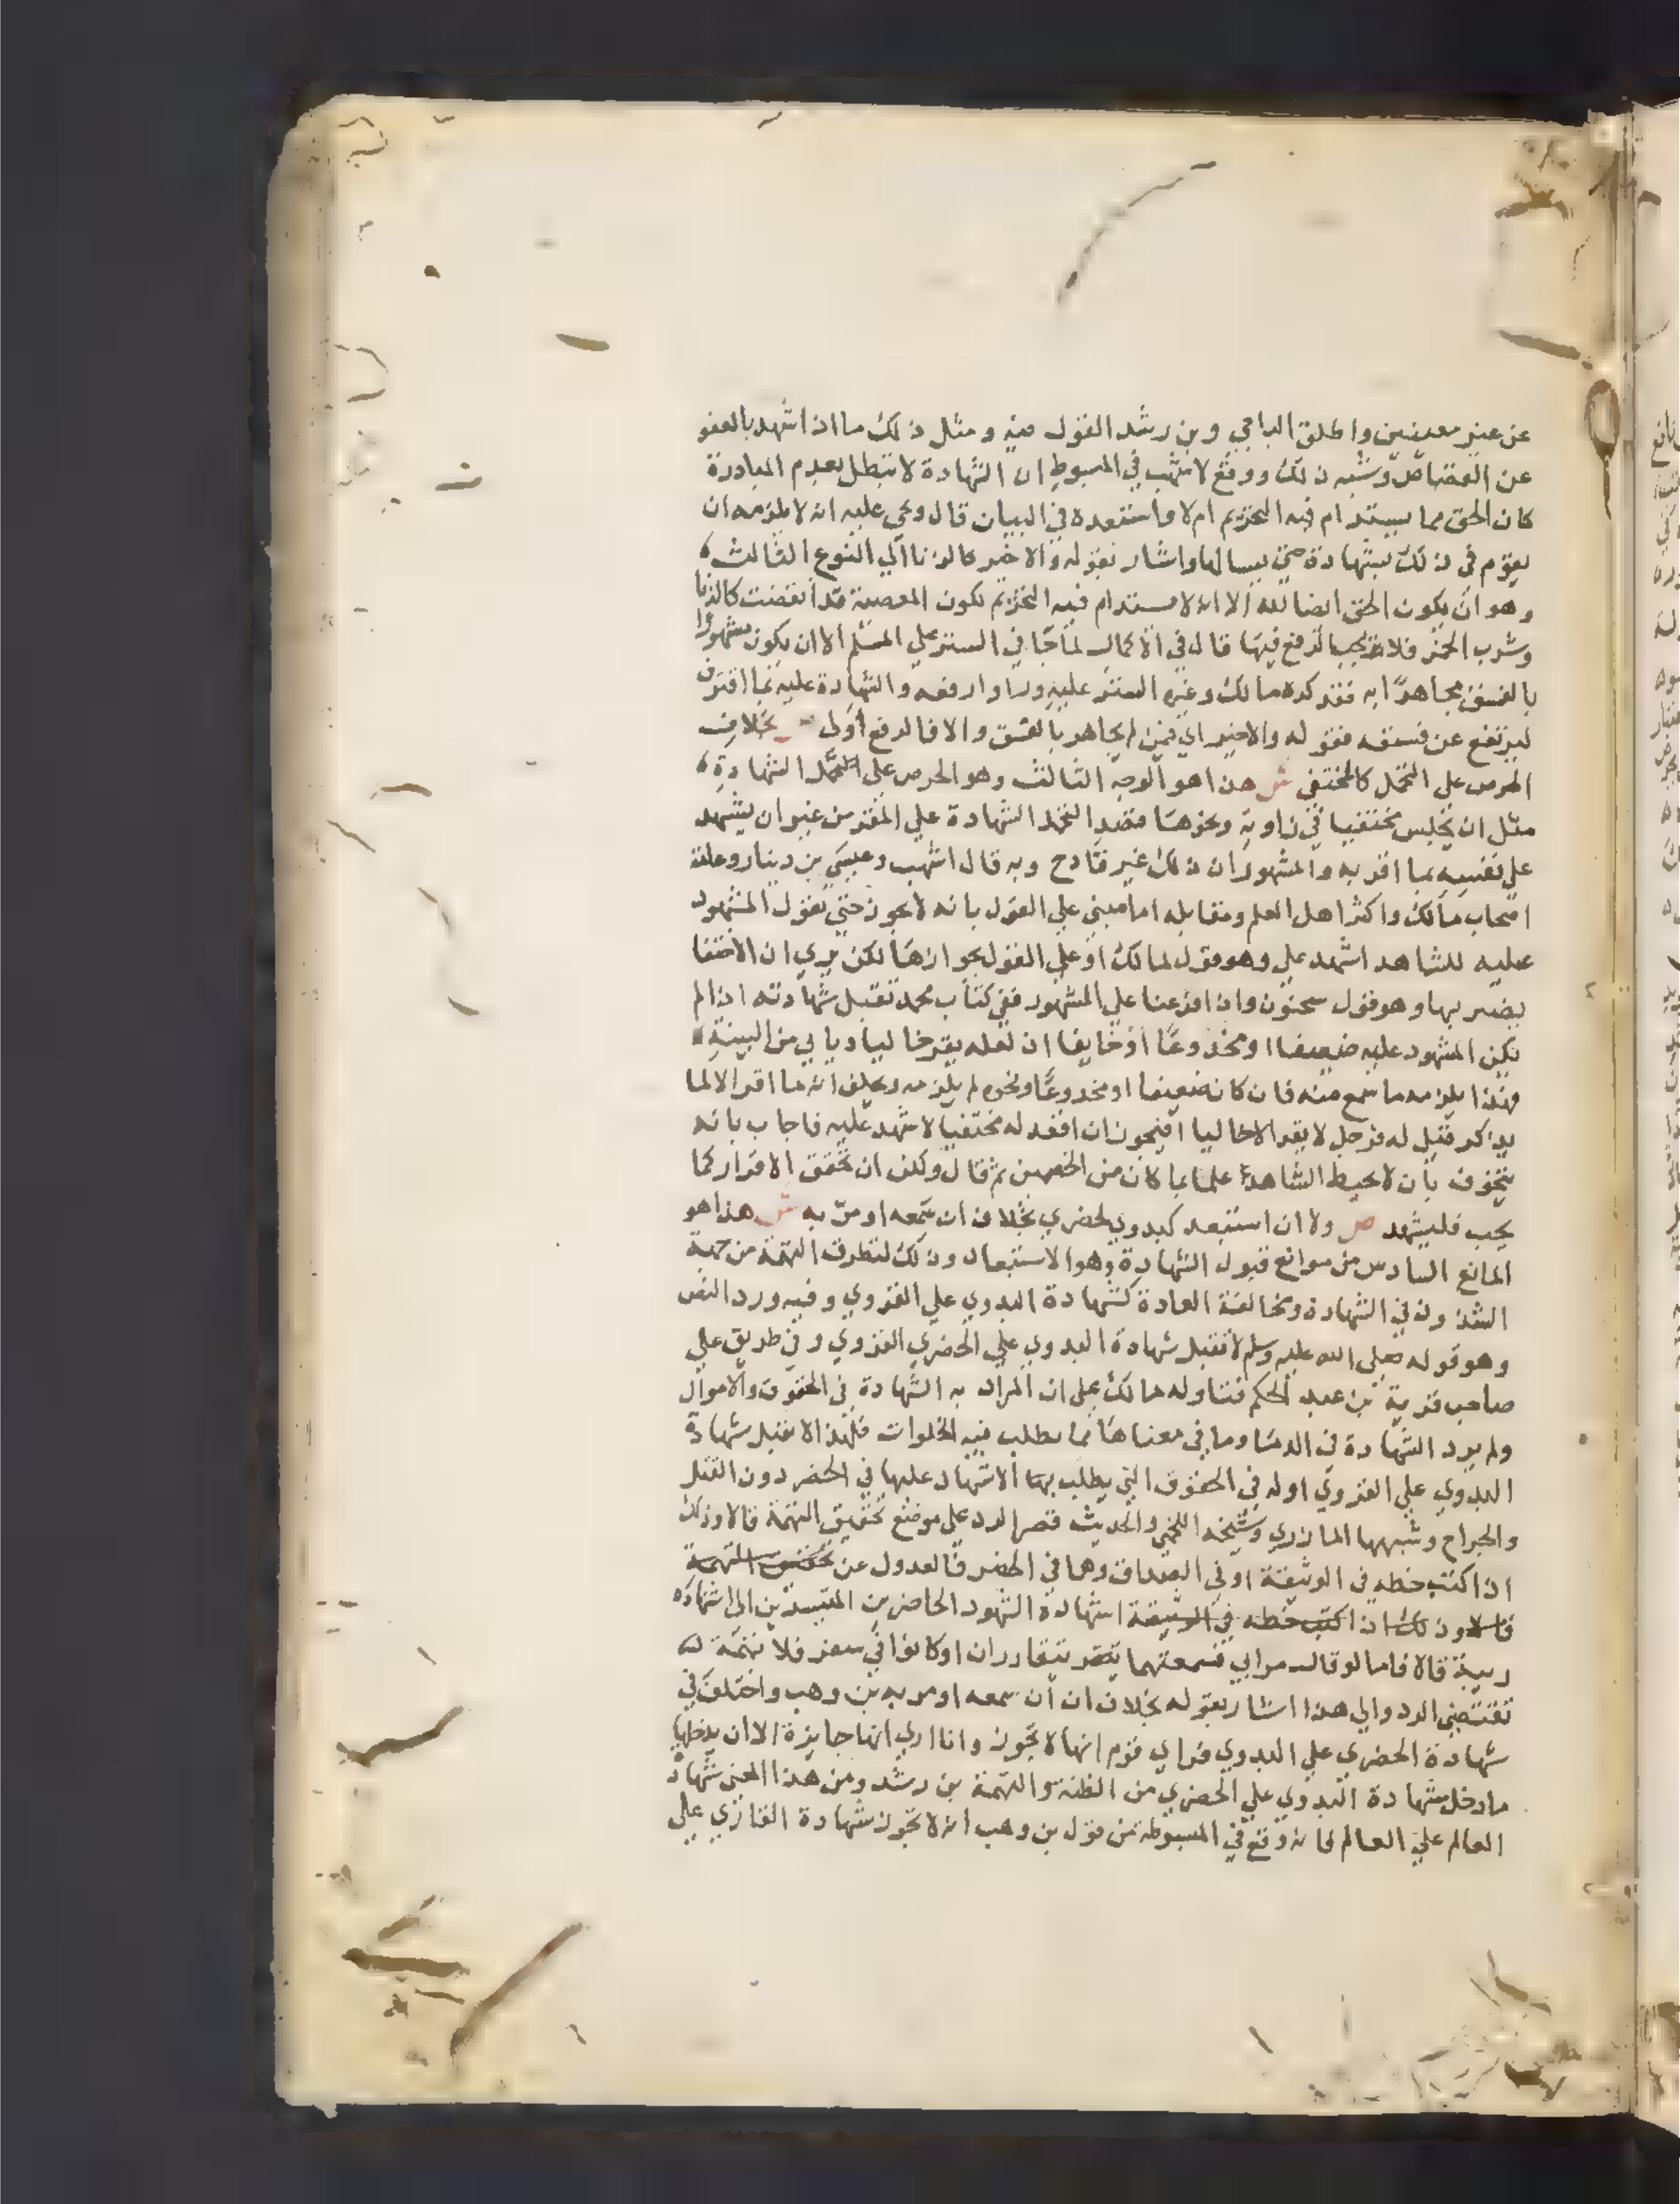 عن غير معينين واطلق الباجي وبن رشد القول فيه ومثل ذلك ما اذا شهد بالعفو
عن القصاص وشبه ذلك ووقع لاشهب في المبسوط ان الشهادة لا تبطل بعدم المبادرة
كان الحق مما يستدام فيه التحريم ام لا واستبعده في البيان قال ويحي عليه انه لا يلزمه ان
يقوم في ذلك بشهادة حتى يسالها واشار بقوله والاخير كالزنا الي النوع الثالث
وهو ان يكون الحق ايضا لله الا انه لا يستدام فيه التحريم لكون المعصية قد انقضت كالزنا
وشرب الخمر فلا يجب الرفع فيها قال في الاكمال لما جا في الستر علي المسلم الا ان يكون مشهورا
بالفسق مجاهرا به فقد كره مالك وغيره الستر عليه وراوا رفعه والشهادة عليه بما اقترف
ليرتفع عن فسقه فقوله والاخير اي فيمن لم يجاهر بالفسق والا فالرفع اولى ص بخلاف
الحرص على التحمل كالمختفي ش هذا هو الوجه الثالث وهو الحرص على التحمل الشهادة
مثل ان يجلس مختفيا في زاوية ونحوها قصد التحمل الشهادة علي المقر من غير ان يشهد
علي نفسه بما اقر به والمشهور ان ذلك غير قادح وبه قال اشهب وعيسى بن دينار وعامة
اصحاب مالك واكثر اهل العلم ومقابله اما مبني علي القول بانه لا يجوز حتى يقول المشهود
عليه للشاهد اشهد علي وهو قول لمالك او علي القول بجوازها لكن يري ان الاختفا
يضر بها وهو قول سحنون واذا فرعنا علي المشهور ففي كتاب محمد تقبل شهادته اذا لم
يكن المشهود عليه ضعيفا او مخدوعا او خايفا اذ لعله يقر خاليا ويابي من البينة
فهذا يلزمه ما سمع منه فان كان ضعيفا او مخدوعا ونحوه لم يلزمه ويحلف انه ما اقر الا لما
يذكر قيل له فرجل لا يقر الا خاليا افيجوز ان اقعد له مختفيا لاشهد عليه فاجاب بانه
يتخوف بان لا يحيط الشاهد علما بما كان من الخصمين ثم قال ولكن ان تحقق الاقرار كما
يجب فليشهد ص ولا ان استبعد كبدوي لحضري بخلاف ان سمعه او مر به ش هذا هو
المانع السادس من موانع قبول الشهادة وهو الاستبعاد وذلك لتطرق التهمة من جهة
الشذوذ في الشهادة ومخالفة العادة كشهادة البدوي علي القروي وفيه ورد النص
وهو قوله صلى الله عليه وسلم لا تقبل شهادة البدوي علي الحضري القروي وفي طريق علي
صاحب قرية بن عبد الحكم فتناوله مالك على ان المراد به الشهادة في الحقوق والاموال
ولم يرد الشهادة في الدما وما في معناها مما يطلب فيه الخلوات فلهذا لا تقبل شهادة
البدوي علي القروي اوله في الحقوق التي يطلب بها الاشهاد عليها في الحضر دون القتل
والجراح وشبهها المازري وشيخه اللخمي والحديث قصر الرد علي موضع تحقيق التهمة قالا وذلك
اذا كتب خطه في الوثيقة او في الصداق وهما في الحضر فالعدول عن تحقيق التهمة
قالا وذلك اذا كتب خطه في الوثيقة اشهادة الشهود الحاضرين المتيسرين الى اشهاده
ريبة قالا فاما لو قال مر ابي فسمعتهما يتقارران او كانوا في سفر فلا تهمة له
تقتضي الرد والى هذا اشار بقوله بخلاف ان ان سمعه او مر به بن وهب واختلف في
شهادة الحضري علي البدوي فراي قوم انها لا تجوز وانا اري انها جايزة الا ان يدخلها
ما دخل شهادة البدوي علي الحضري من الظنة والتهمة بن رشد ومن هذا المعنى شهادة
العالم علي العالم فانه وقع في المبسوطة من قول بن وهب انه لا تجوز شهادة القاري علي